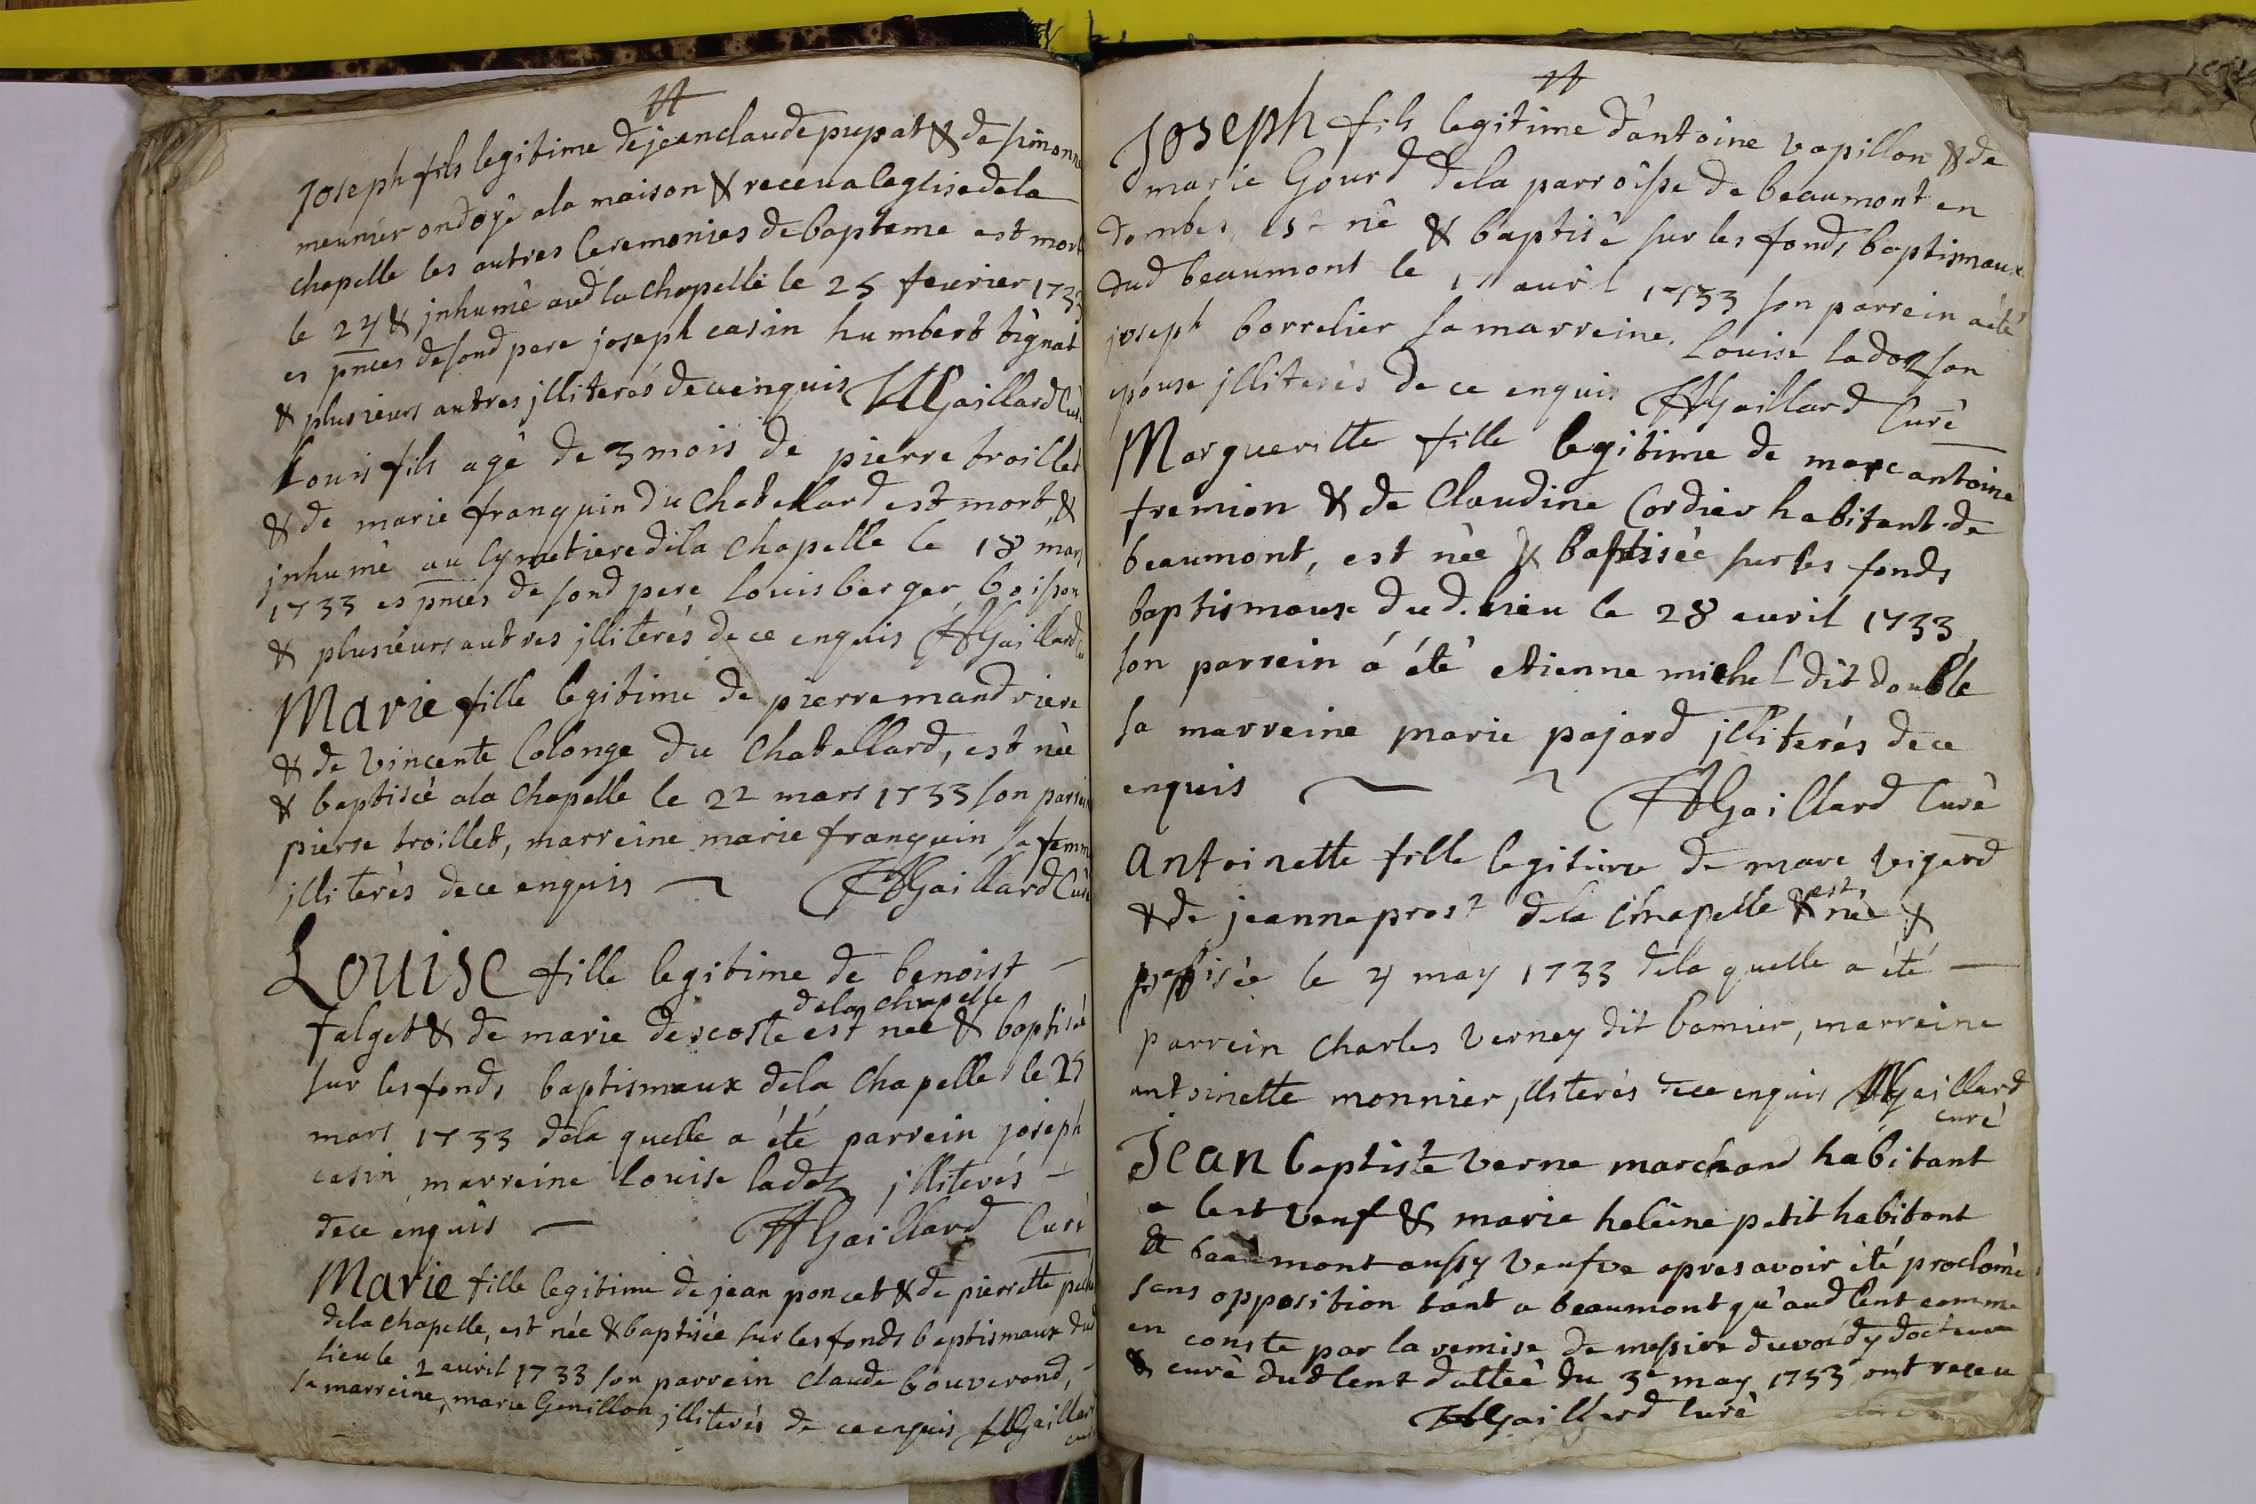 Joseph fils legitime de jeanclaude pupat & de simonne
meunier ondoyé ala maison & receu a leglise dela
chapelle les autres Ceremonies de bapteme est mort
le 24 & jnhumè aud la chapelle le 25 feurier 1733
es pnces de sond pere joseph casin humbert tignat
& plusieurs autres jlliterés dece enquis Gaillard Curé
Louis fils agè de 3 mois de pierre troillet
& de marie franquin du Chatellard est mort, &
jnhumè au Cymetiere dela Chapelle le 18 mars
1733 es pnces de sond pere Louis berger boisson
& plusieurs autres jlliterés de ce enquis Gaillard
Marie fille legitime de pierre mandriere
& de vincente Colonge du Chatellard, est née
& baptisée ala Chapelle le 22 mars 1733 son parrein
pierre troillet, marreine marie franquin sa femme
jlliterés dece enquis Gaillard Curé
Louise fille legitime de benoist
dela chapelle
falget & de marie descoste est née & baptisée
sur les fonds baptismaux dela Chapelle le 25
mars 1733 dela quelle a été parrein joseph
casin marreine Louise ladoz jlliterés
dece enquis Gaillard Curé
Marie fille legitime de jean poncet & de pierrette
dela chapelle, est née & baptisée sur les fonds baptismaux dud
lieu le 2 auril 1733 son parrein claude bouverond,
sa marreine, marie Genillon jlliterés de ce enquis Gaillard
curé
Joseph fils legitime d'antoine vapillon & de
marie Gourd dela parroisse de beaumont en
dombes, est nê & baptisê sur les fonds baptismaux
dud beaumont le auril 1733 son parrein a été
joseph borrelier sa marreine. Louise ladoz son
epouse jlliterés de ce enquis Gaillard Curê
Margueritte fille legitime de marc antoine
fremion & de Claudine Cordier habitant de
beaumont, est née & baptisée sur les fonds
baptismaux dud. lieu le 28 auril 1733,
son parrein á étè etienne michel dit double
sa marreine marie pajard jlliterés dece
enquis Gaillard Curê
Antoinette fille legitime de marc vigard
est
& de jeanne prost dela Chapelle & née &
baptisée le 4 may 1733 dela quelle a été
parrein Charles Verney dit bamier, marreine
antoinette monnier, jlliterés dece enquis Gaillard
curé
Jean baptiste verne marchand habitant
a lent veuf & marie heleine petit habitant
a beaumont aussy veufve apres avoir été proclamé
sans opposition tant a beaumont qu'aud lent comme
en conste par la remise de messire duvoidy docteur
& curè dud lent dattèe du 3e may 1733 ont receu
Gaillard Curè